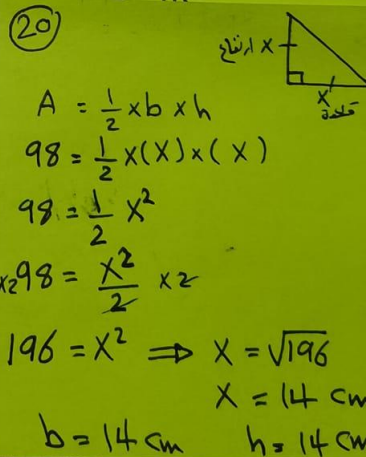 20
ارتفاع X
X
قاعدة
A = 1/2 × b × h
98 = 1/2 × (X) × (X)
98 = 1/2 X²
×2 98 = X²/2 × 2
196 = X² ⇒ X = √196
X = 14 cm
b = 14 cm h = 14 cm